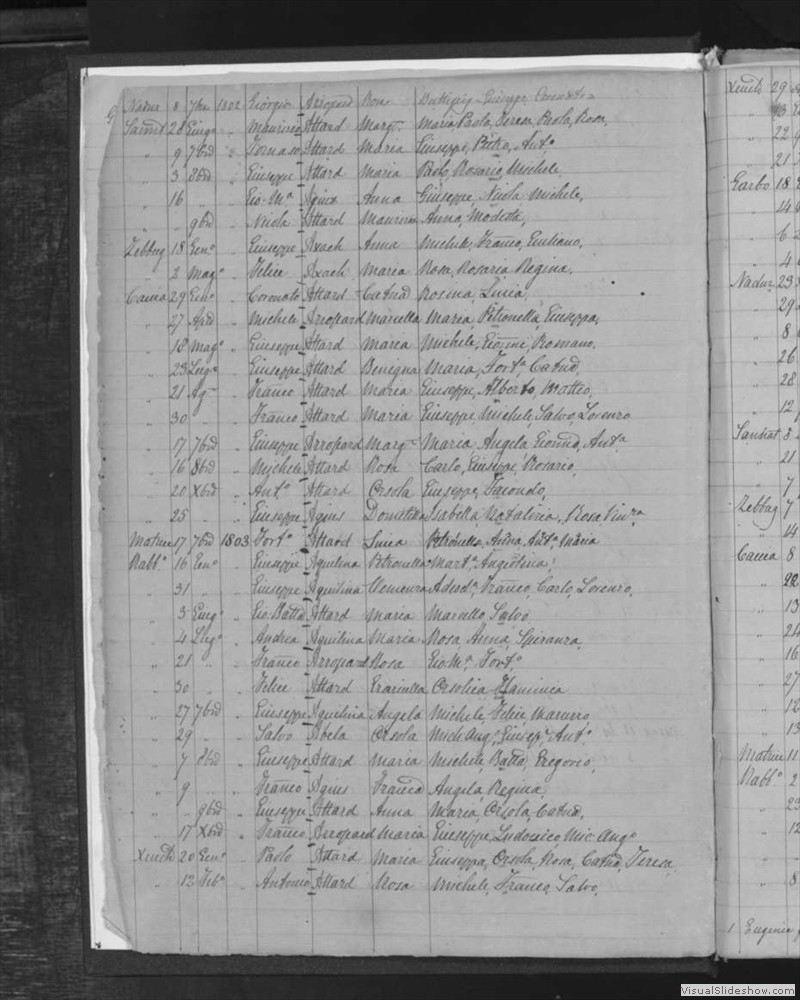 Nadur 8 7bre 1802 Giorgio Arropard Rosa Giuseppe
Sannt 28 Giugo " Maurizio Attard Marga Maria Paola, Teresa, Paola, Rosa,
" 9 7brd " Tomaso Attard Maria Giuseppe, Pietro, Anto
" 3 8brd " Giuseppe Attard Maria Paolo, Rosario, Michele,
" 16 " Gio Ma Agius Anna Giuseppe, Nicola, Michele,
" " 9brd " Nicola Attard Maurizia Anna, Modesta,
Zebbug 18 Geno " Giuseppe Axach Anna Michele, Franco, Giuliano,
" 2 Mago " Felice Axach Maria Rosa, Rosaria, Regina,
Caccia 29 Geno " Coronato Attard Catnd Rosina, Lucia,
" 27 Aprd " Michele Arropard Marcella Maria, Petronella, Giuseppa,
" 18 Mago " Giuseppe Attard Maria Michele, Gionni, Romano,
" 23 Lugo " Giuseppe Attard Benigna Maria, Forta Catnd,
" 21 Ag " Franco Attard Maria Giuseppe, Alberto, Matteo,
" 30 Franco Attard Maria Giuseppe, Michele, Salvo, Lorenzo
" 17 7brd " Giuseppe Arropard Marga Maria, Angela, Gionna, Anta
" 16 8brd " Michele Attard Rosa Carlo, Giuseppe, Rosario,
" 20 Xbrd " Anto Attard Orsola Giuseppe, Facondo,
" 25 " " Giuseppe Agius Dometilla Isabella, Natalizia, Rosa
Matrice 17 7brd 1803 Forto Attard Lucia Petronella, Anna, Anta, Maria
Rabbo 16 Geno " Giuseppe Aquilina Petronella Marta, Angiolina,
" 31 " Giuseppe Aquilina Franco, Carlo, Lorenzo,
" 3 Giugo " Gio Batta Attard Maria Marcello, Salvo
" 4 Lugo " Andrea Aquilina Maria Rosa, Anna, Speranza,
" 21 " " Franco Arropard Rosa Gio Ma, Forto
" 30 " " Felice Attard Graziulla Orsolica, Flaminia
" 27 7brd " Giuseppe Aquilina Angela Michele, Felice,
" 29 " " Salvo Abela Orsola Mich Ango, Giusepe, Anto
" 7 8brd " Giuseppe Attard Maria Michele, Batta, Gregorio,
" 9 " Franco Agius Francd Angela, Regina,
" " 9brd " Giuseppe Attard Anna Maria, Orsola, Catnd,
" 17 Xbrd " Franco Arropard Maria Giuseppe, Lodovico, Mic. Ango
Xeuch 20 Geno " Paolo Attard Maria Giuseppa, Orsola, Rosa, Catnd, Teresa
" 12 Febo " Antonio Attard Rosa Michele, Franco, Salvo,
Xeuch 29
13
" 22
" 21
Garbo 18
" 14
" 6
" 4
Nadur 23
" 29
" 8
" 26
" 28
" 12
Sannat 3
" 21
" 7
Zebbug 7
" 14
Caccia 8
" 22
" 13
" 24
" 16
" 27
" 12
" 13
Matrice 11
Rabbo 2
" 12
" 8
1 Eugenia
VisualSlideshow.com